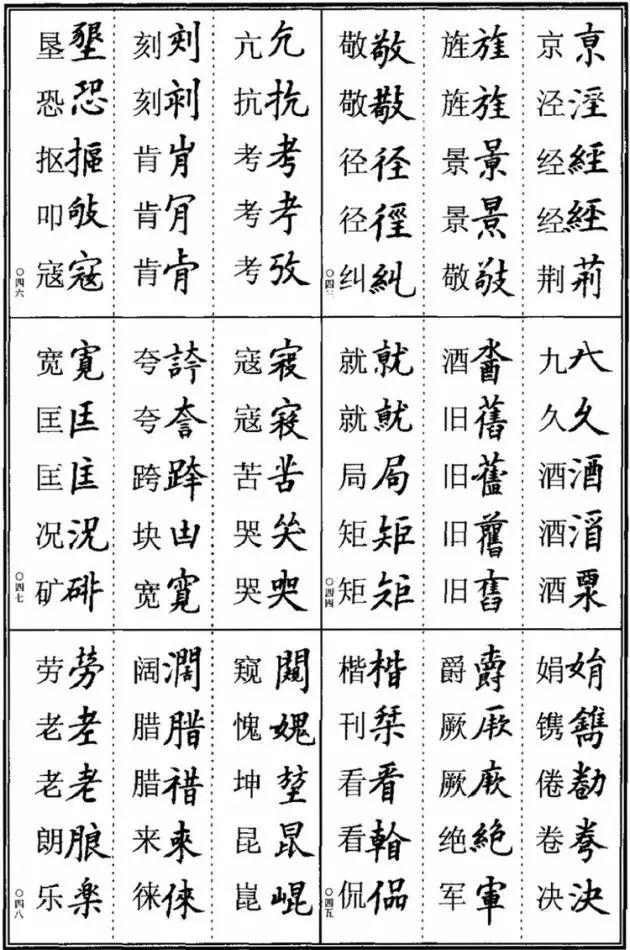 京亰泾涇经經经經荆荊
旌旌旌旌景景景景敬敬
敬敬敬敬径径径徑纠糾
〇四三
九久久酒酒酒酒
酒旧舊旧舊旧舊旧舊
就就就就局局矩矩矩矩
〇四四
娟娟镌鐫倦卷决決
爵爵厥厥厥厥绝絶军軍
楷楷刊栞看看看侃偘
〇四五
亢亢抗抗考考考考考攷
刻刻刻肯肯肯肎肯肯
垦墾恐恐抠摳叩敂寇寇
〇四六
寇寇苦苦哭哭
夸誇夸跨跨块凷宽寬
宽寬匡匡匡匡况況矿
〇四七
窥闚愧媿坤堃昆昆崑崐
阔濶腊腊腊来來徕倈
劳勞老老老老朗朖乐楽
〇四八